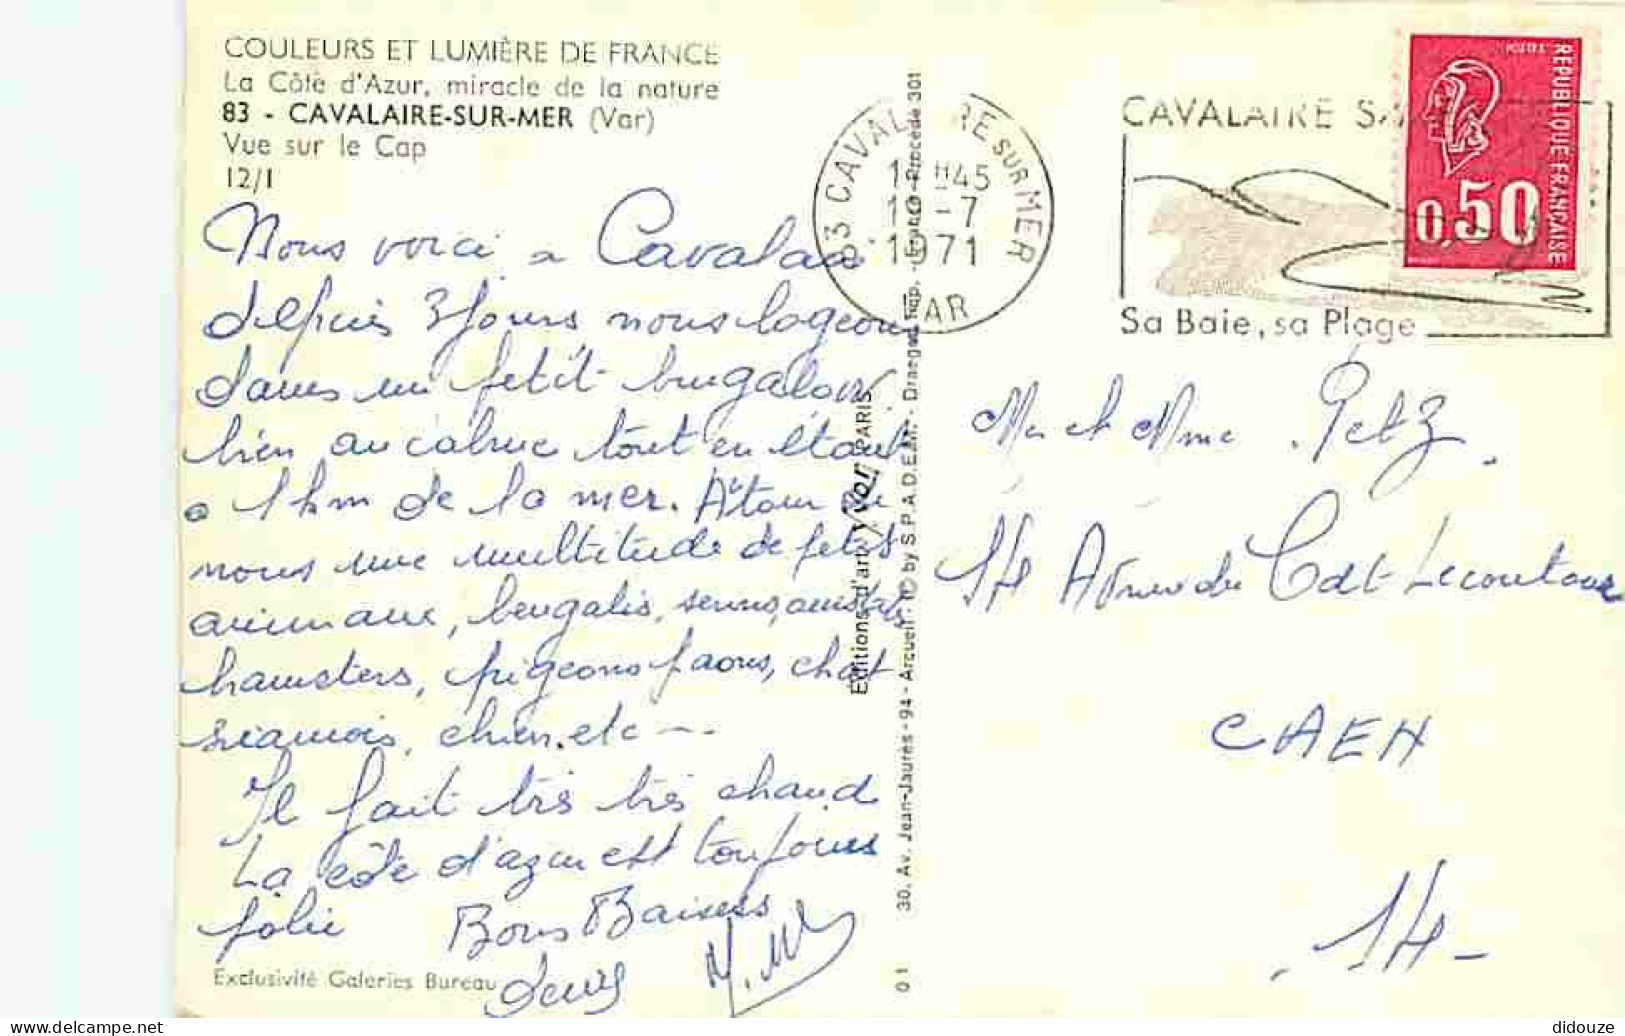 COULEURS ET LUMIÈRE DE FRANCE
La Côte d'Azur, miracle de la nature
83 - CAVALAIRE-SUR-MER (Var)
Vue sur le Cap
12/1
Nous voici a Cavalaire
depuis 3 jours nous logeons
dans un petit bungalow
bien au calme tout en étant
a 1 km de la mer. Autour de
nous une multitude de petits
animaux, bengalis, serins,
hamsters, pigeons paons, chat
siamois, chien, etc --
Il fait très très chaud
La côte d'azur est toujours
jolie Bons Baisers
Denis
Exclusivité Galeries Bureau
Editions d'art Yvon PARIS
30, Av. Jean-Jaurès - 94 - Arcueil - © by S.P.A.D.E.M. - Draeger, imp. - France-Procédé 301
01
83 CAVALAIRE SUR MER
H45
-7
1971
VAR
CAVALAIRE SA
Sa Baie, sa Plage
POSTES
REPUBLIQUE FRANCAISE
0,50
Mr et Mme Petz
14 Avenue du Cdt Lecoutour
CAEN
14-
didouze